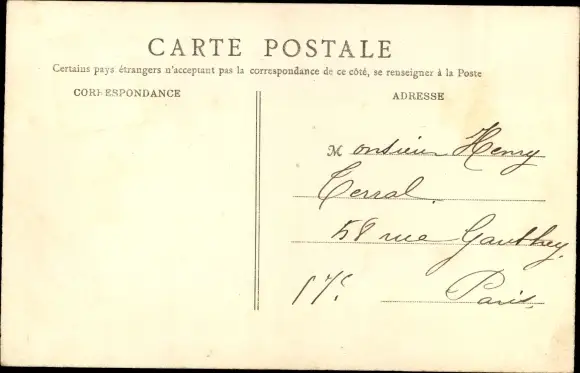 CARTE POSTALE
Certains pays étrangers n'acceptant pas la correspondance de ce côté, se renseigner à la Poste
CORRESPONDANCE
ADRESSE
Monsieur Henry
Terral.
58 rue Gauthey.
17e Paris.